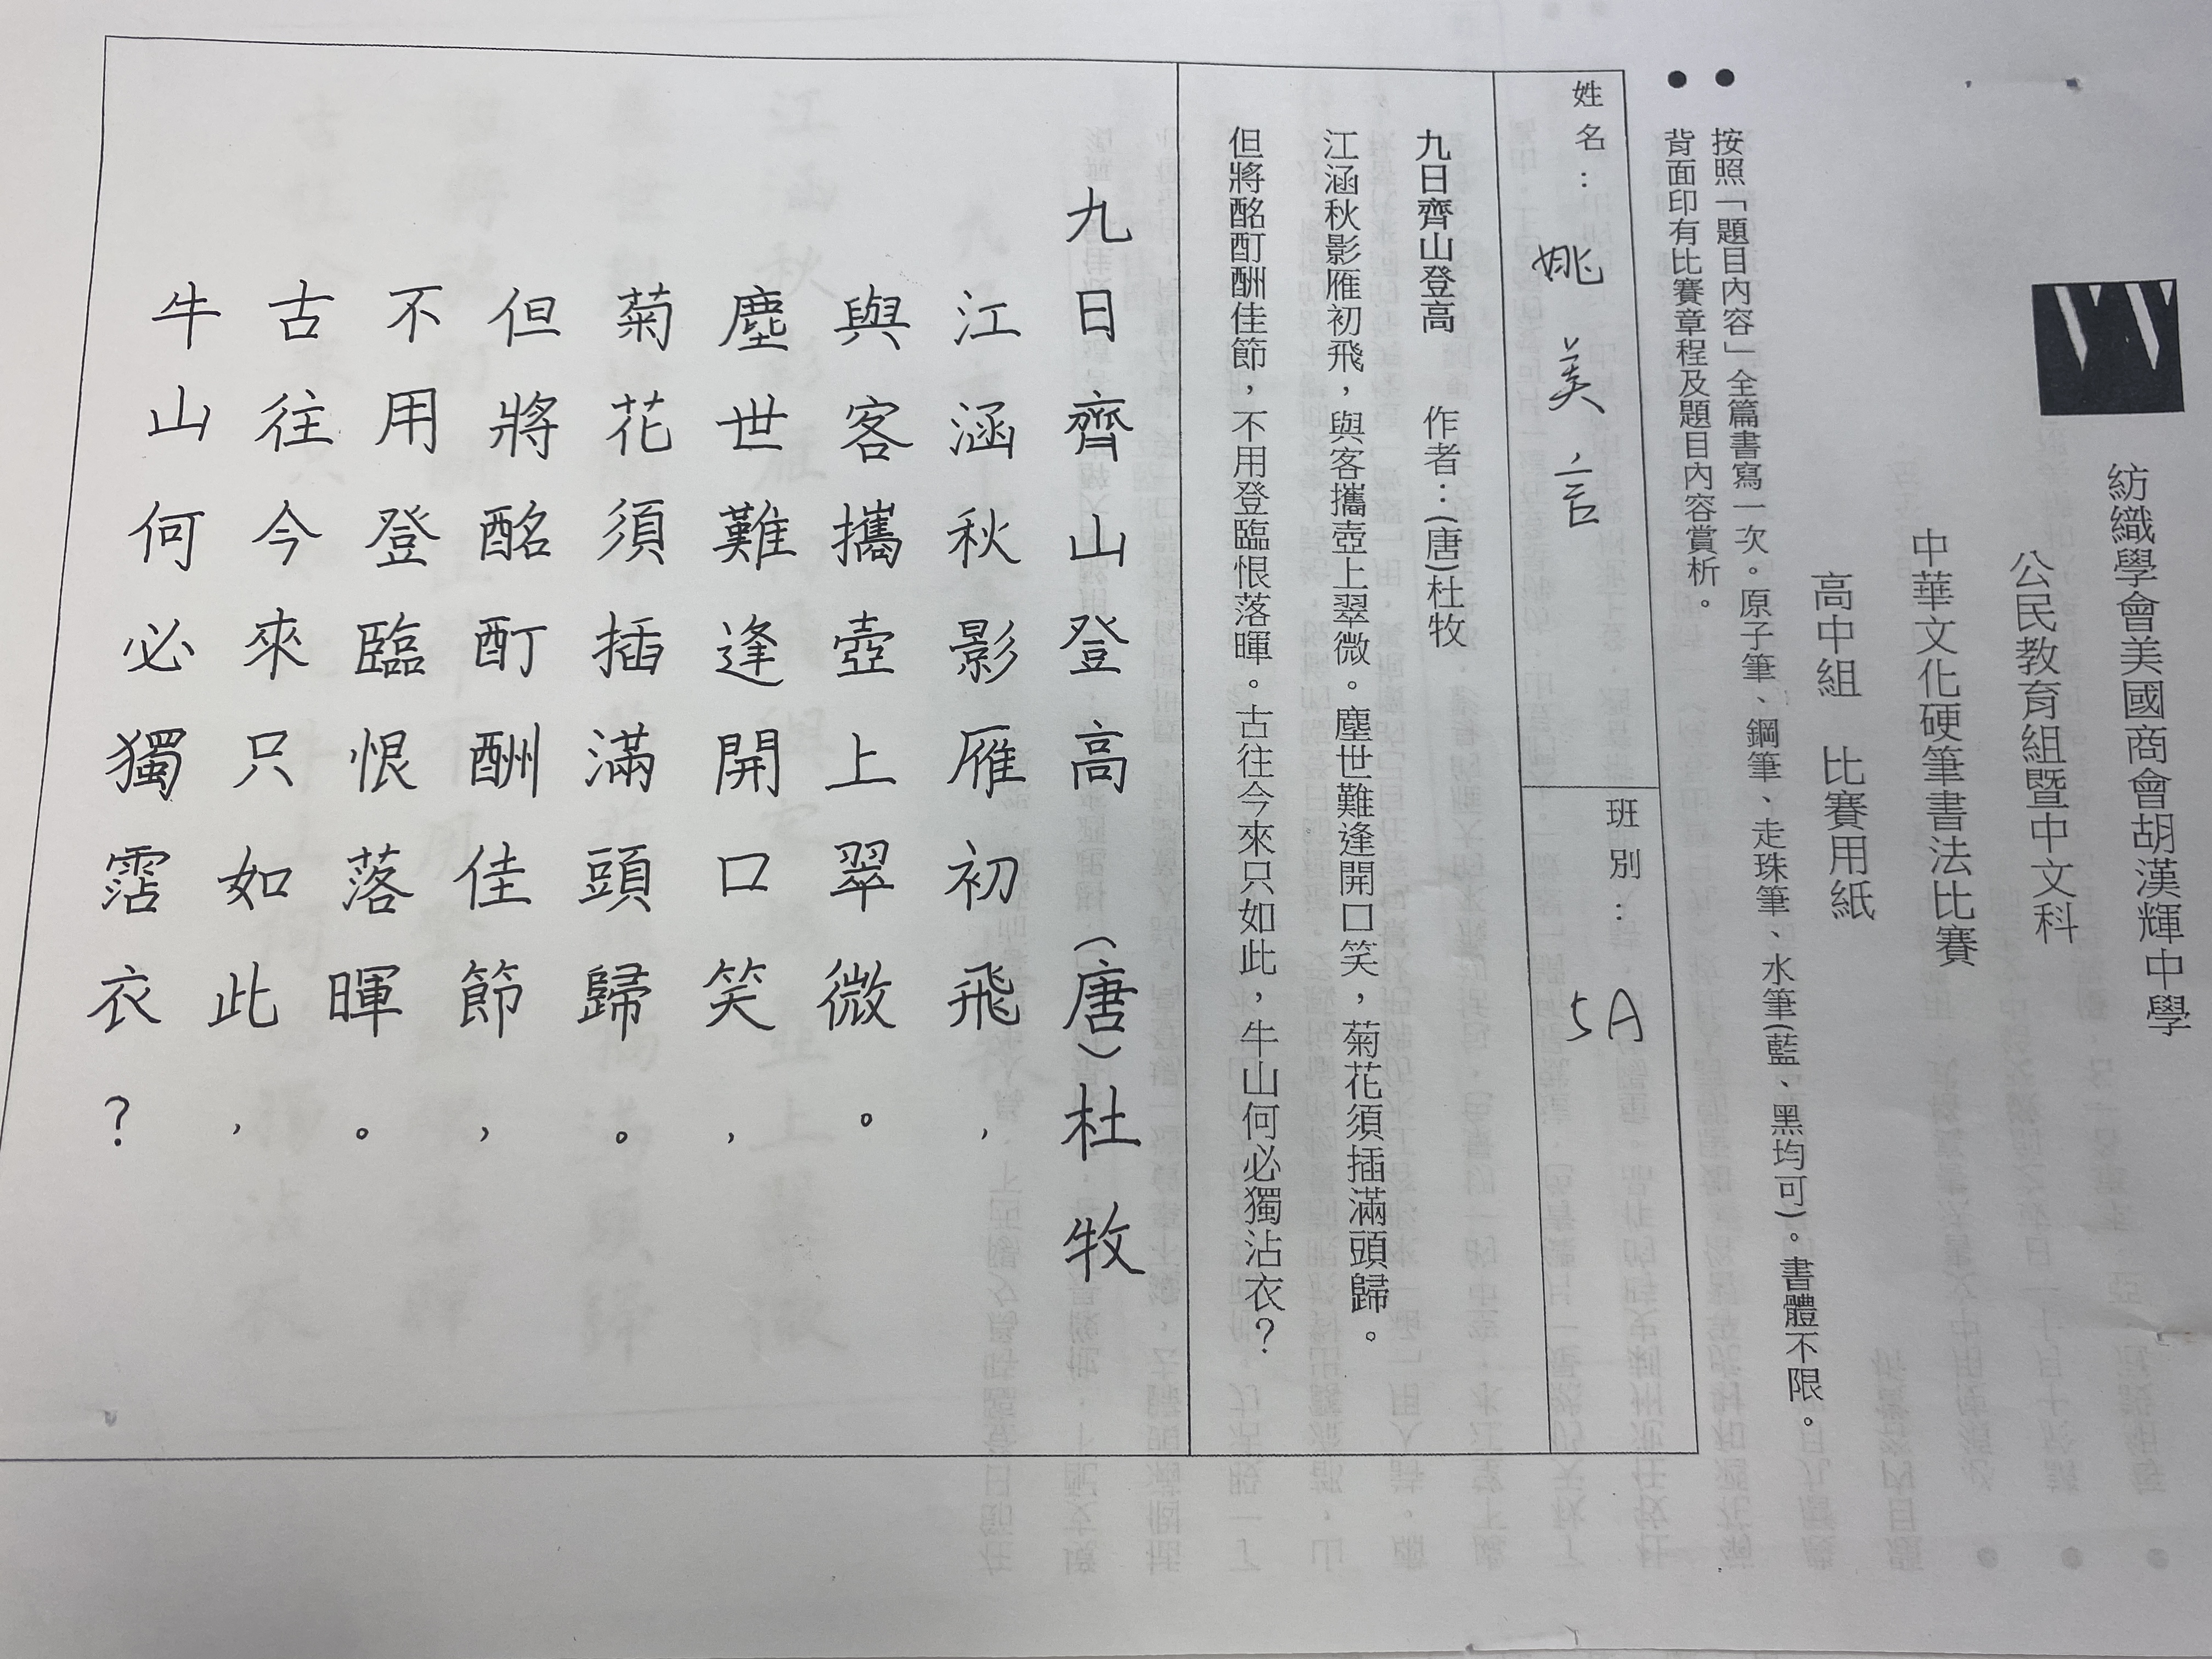 紡織學會美國商會胡漢輝中學
公民教育組暨中文科
中華文化硬筆書法比賽
高中組 比賽用紙
● 按照「題目內容」全篇書寫一次。原子筆、鋼筆、走珠筆、水筆(藍、黑均可)。書體不限。
● 背面印有比賽章程及題目內容賞析。
姓名： 姚美言
班別： 5A
九日齊山登高 作者：(唐)杜牧
江涵秋影雁初飛，與客攜壺上翠微。塵世難逢開口笑，菊花須插滿頭歸。
但將酩酊酬佳節，不用登臨恨落暉。古往今來只如此，牛山何必獨沾衣？
九日齊山登高(唐)杜牧
江涵秋影雁初飛，
與客攜壺上翠微。
塵世難逢開口笑，
菊花須插滿頭歸。
但將酩酊酬佳節，
不用登臨恨落暉。
古往今來只如此，
牛山何必獨霑衣？